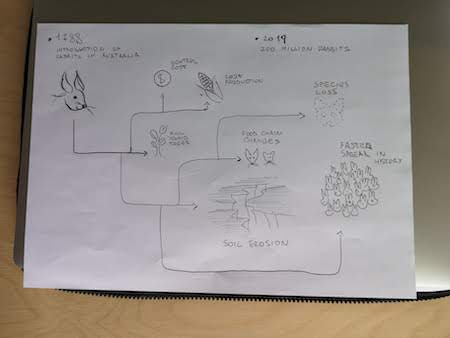 • 1788
INTRODUCTION OF
RABBITS IN AUSTRALIA
• 2019
200 MILLION RABBITS
CONTROL
COST
$
LOST
PRODUCTION
SPECIES
LOSS
KILL
YOUNG
TREES
FOOD CHAIN
CHANGES
FASTER
SPREAD IN
HISTORY
SOIL EROSION